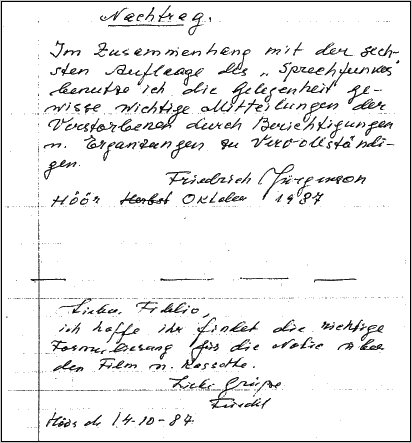 Nachtrag.
Im Zusammenhang mit der sech-
sten Auflaage des „Sprechfunkes"
benutze ich die Gelegenheit ge-
wisse wichtige Mitteilungen der
Verstorbenen durch Berichtigungen
u. Ergänzungen zu vervollständi-
gen.
Friedrich Jürgenson
Höör Herbst Oktober 1987
Fidelio,
ich hoffe ihr findet die richtige
Formulierung für die Notiz über
den Film u. Kassette.
Liebe Grüsse
Friedel
Höör d. 14-10-87